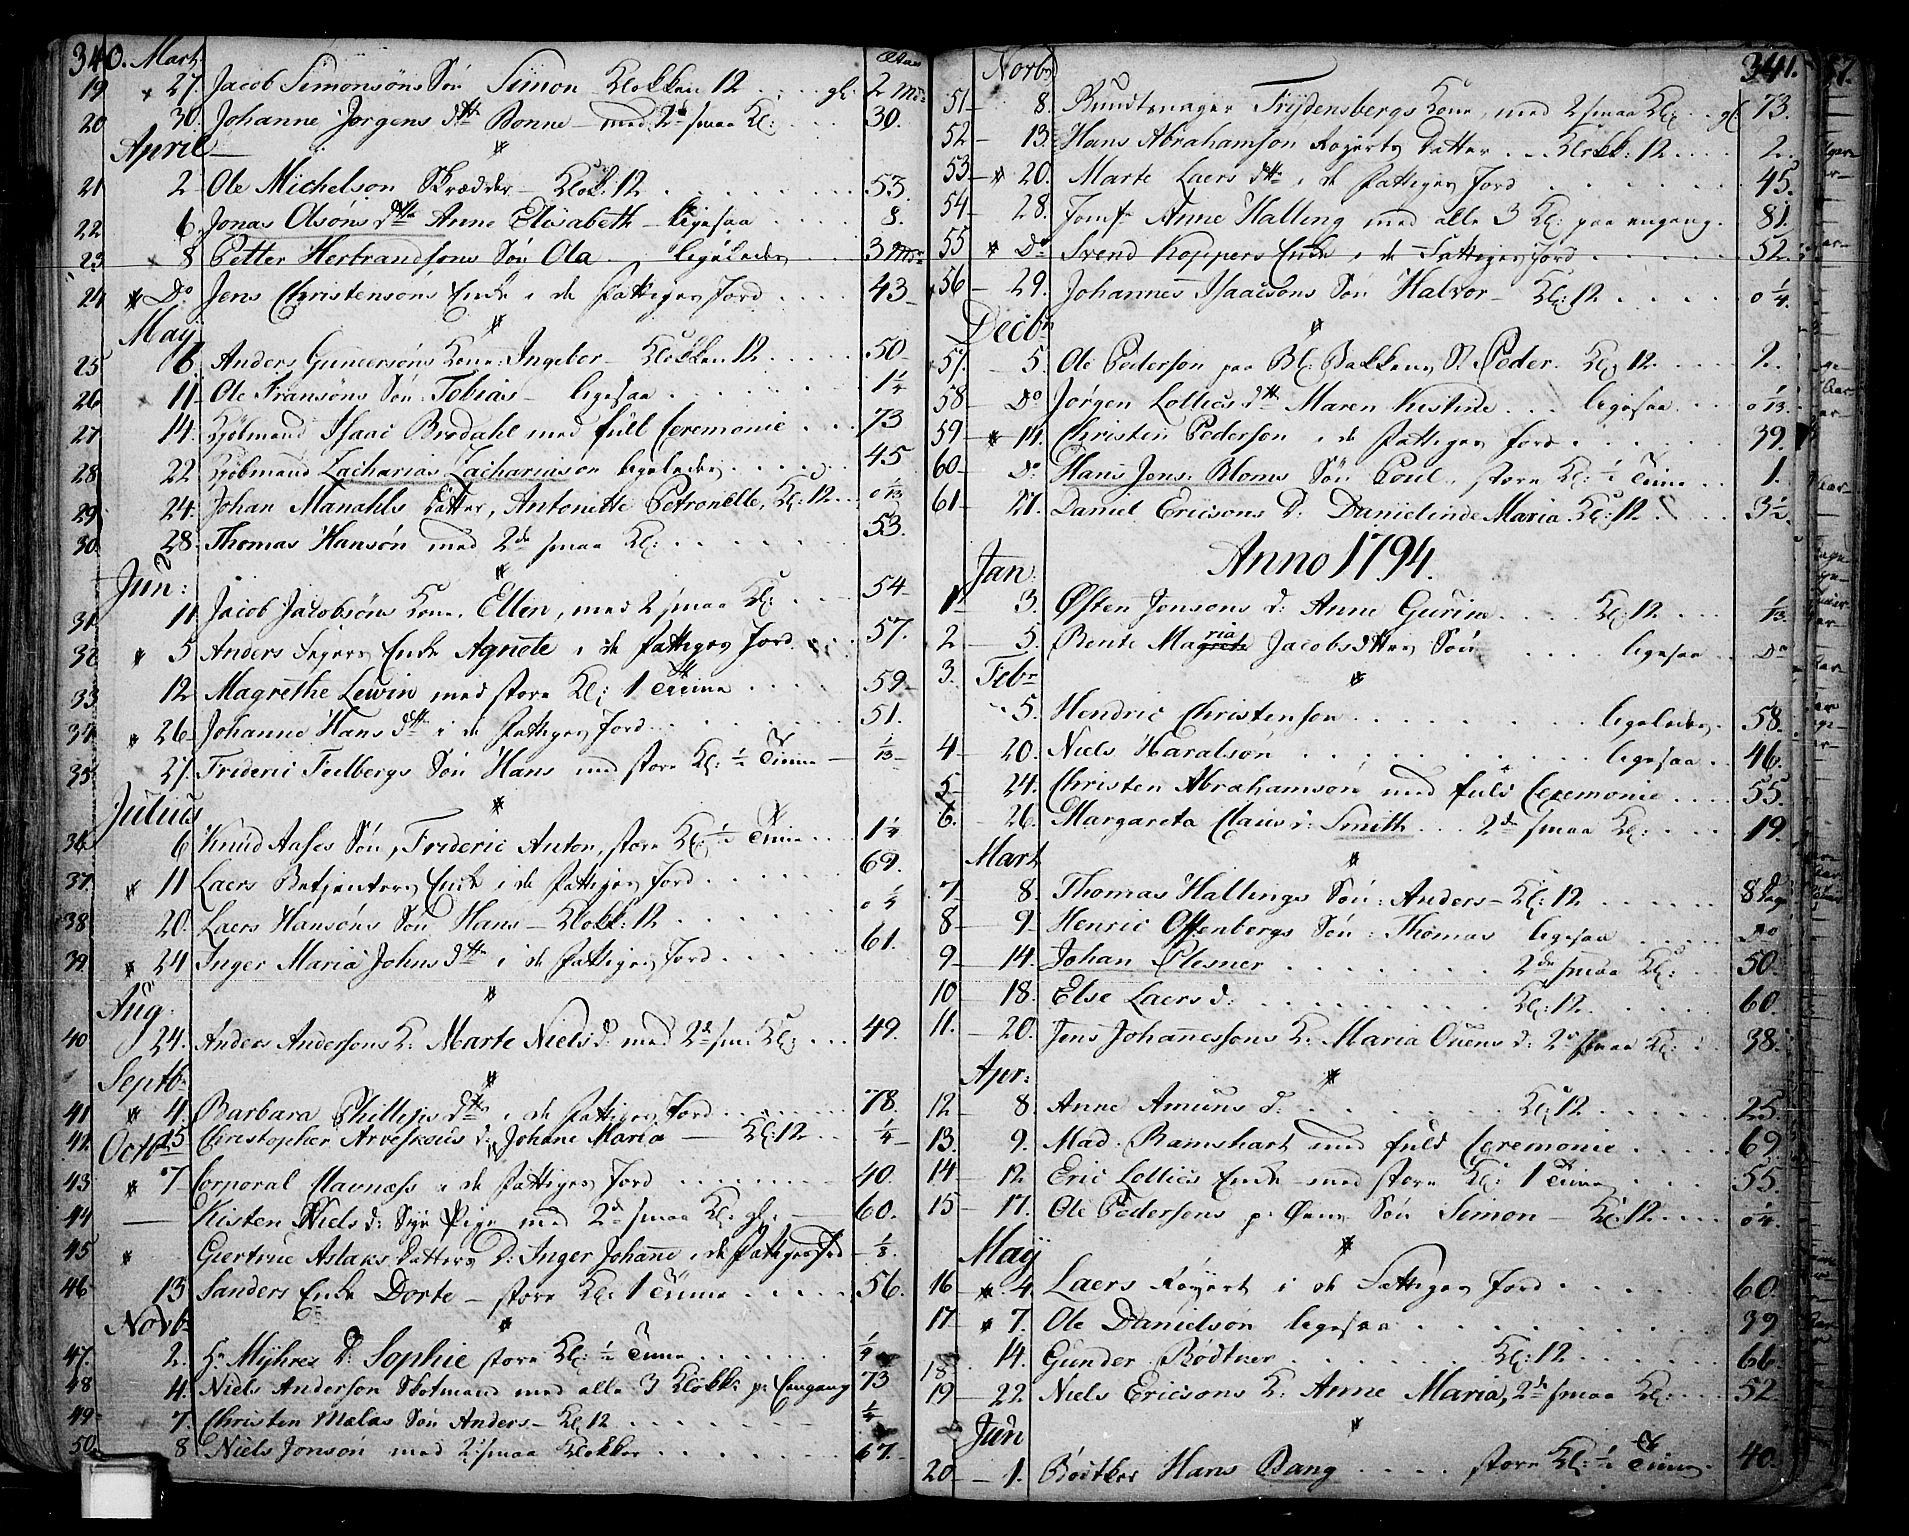 340. Mart: Ætas
19 27. Jacob Simonsøns Søn Simon Klokken 12 2 Mr
20 30. Johanne Jørgens dtr Bonne med 2de smaa Kl: 30.
April
21 2 Ole Michelson Skrædder Klok: 12 53.
22 6. Jonas Olsøns dtr Anne Elisabeth ligesaa 8.
23 8 Petter Hertrandsons Søn Ola ligeledes 3 Mr
24 Do Jens Christensøns Enke i de Fattiges Jord 43
May
25 6. Anders Gunersøns Kone: Ingebor Klokken 12 50
26 11 Ole Fransøns Søn: Tobias ligesaa 1¼
27 14. Kjøbmand Isaac Brodahl med full Ceremonie 73
28 22 Kjøbmand Zacharias Zachariasøn ligeledes 45
29 24. Johan Manahls Datter, Antonette Petronelle, Kl: 12 0 1/13
30 28. Thomas Hansøn med 2de smaa Kl: 53.
Jun:
31 11 Jacob Jacobsøns Kone. Ellen, med 2 smaa Kl: 54
32 5 Anders Enke Agnete i de Fattiges Jord 57.
33 12 Magrethe Lewin med store Kl: 1 Time 59
34 26 Johanne Hans dtr i de Fattiges Jord 51.
35 27. Frideric Feelbergs Søn Hans med store Kl: ½ Time 1/13
Julius
36 6 Knud Aases Søn, Frideric Anton, store Kl: ½ Time 1¼
37 11 Laers Betjenters Enke i de Fattiges Jord 69.
38 20. Laers Hansøns Søn Hans Klokk: 12 0¼
39 24 Inger Maria Johns dtr i de Fattiges Jord 61.
Aug:
40 24. Anders Andersons K: Marte Niels d: med 2de sm: Kl: 49.
Septb:
41 4. Barbara Phillips dtr i de Fattiges Jord 78.
42 15 Christopher d: Johane Maria Kl: 12 ¼
Octb:
43 7 Corporal Mavness i de Fattiges Jord 40.
44 Kisten Niels d: Pige med 2de smaa Kl: 60.
45 Giertrue Aslaks Datters D: Inger Johanne i de Fattiges Jord ⅛.
46 13 Sanders Enke Dorte store Kl: 1 Time 56.
Novb:
47. 2. Hr Myhres D: Sophie store Kl: ½ Time ¼
48 4. Niels Anderson Skotmand med alle 3 Klokk: p: Engang 73
49 7 Christen Melas Søn Anders Kl 12 ¼
50. 8 Niels Jonson med 2de smaa Klokker 67.
341.
Novb:
51 8. Bundtmager Frydensbergs Kone, med 2 smaa Kl: 73.
52 13. Hans Abrahamson Røjerts Datter Klokk: 12 2.
53 20. Marte Laers dtr i de Fattiges Jord 45.
54 28. Jomfr Anne Halling med alle 3 Kl: paa engang. 81.
55 Do Svend Koppers Enke i de Fattiges Jord 52.
56 29. Johannes Isaacsons Søn Halvor Kl: 12 0¼.
Decbr
57. 5. Ole Pederson paa Bl: Bakkens S: Peder. Kl: 12 2.
58 Do Jørgen Lollics dtr Maren Kistine ligesaa 0 1/13
59 14. Christen Pederson i de Fattiges Jord 39.
60 Do Hans Jens: Bloms Søn Poul, store Kl: ½ Time 1.
61 21. Daniel Ericsons D: Danielinde Maria Kl: 12 3½.
Anno 1794.
Jan:
1 3. Østen Jonsons d: Anne Gurine Kl: 12 1/13
2 5. Bente Maria Jacobsdtters Søn ligesaa Do
3. Febr
5. Hendric Christenson ligeledes 58.
4 20. Niels Haralsøn ligesaa 46.
5 24. Christen Abrahamson med fuld Ceremonie 55.
6. 26. Margareta Claus: Smith 2de smaa Kl: 19.
Mart
7 8. Thomas Hallings Søn: Anders Kl: 12 8 Dage
8 9 Henric Offenbergs Søn: Thomas ligesaa Do
9 14. Johan Plesner 2de smaa Kl: 50.
10 18. Else Laers d: Kl: 12 60.
11. 20. Jens Johanessons K: Maria Ouens d: 2de smaa Kl: 38.
Apr:
12 8. Anne Amuns d: Kl: 12 25.
13. 9. Mad. Ramshart med fuld Ceremonie 69.
14 12 Eric Lollics Enke med store Kl: 1 Time 55.
15 17. Ole Pedersons Søn Simon Kl: 12 0¼.
May
16 4. Laers Røyert i de Fattiges Jord 60.
17 7. Ole Danielson ligesaa 39
18 14. Gunder Bødtker Kl: 12 66.
19 22. Niels Ericsons K: Anne Maria, 2de smaa Kl: 52
Jun
20 1. Bødtker Hans Bang store Kl: ½ Time 40.